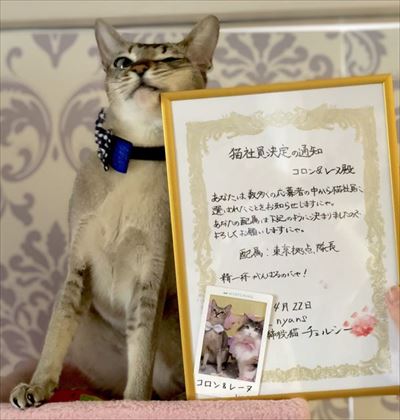 猫社員決定の通知
コロン&レーヌ殿
あなたは数多くの応募者の中から猫社員に
選ばれたことをお知らせしますにゃ。
あなたの配属は下記のように決まりましたので
よろしくお願いしますにゃ。
配属:東京拠点 隊長
精一杯がんばるのにゃ!
4月22日
nyans
締役猫 チェルシー
コロン&レーヌ